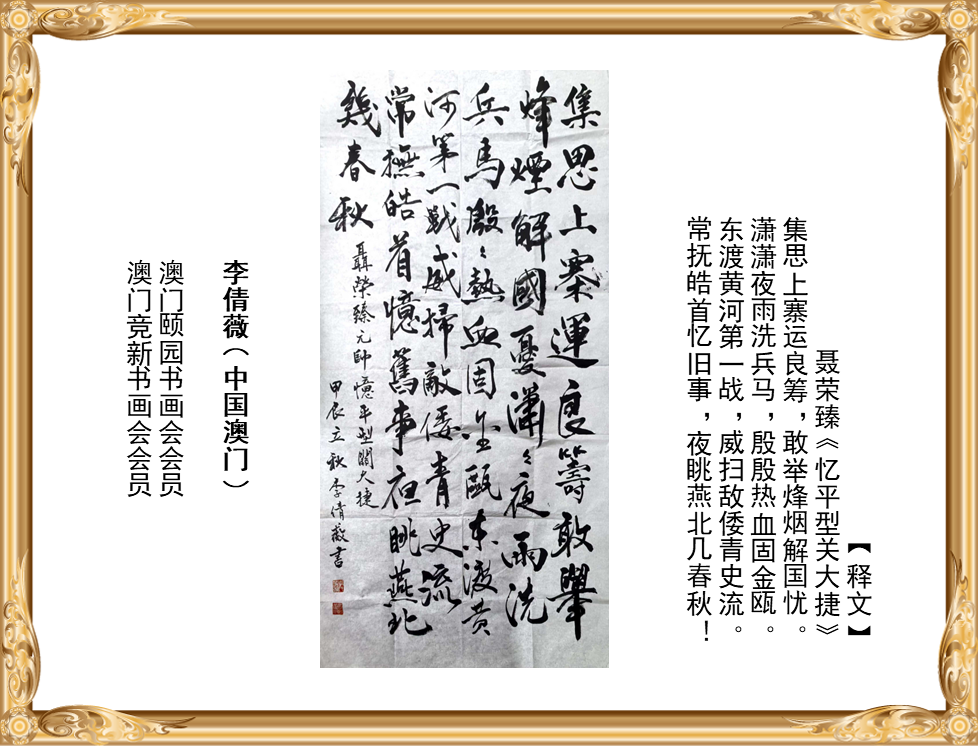 【释文】
聂荣臻《忆平型关大捷》
集思上寨运良筹，敢举烽烟解国忧。
潇潇夜雨洗兵马，殷殷热血固金瓯。
东渡黄河第一战，威扫敌倭青史流。
常抚皓首忆旧事，夜眺燕北几春秋！
集思上寨運良籌敢舉
烽煙解國憂潇〻夜雨洗
兵馬殷〻熱血固金甌东渡黄
河第一戰威掃敵倭青史流
常撫皓首憶舊事夜眺燕北
幾春秋
聶榮臻元帥憶平型關大捷
甲辰立秋李倩薇書
李倩薇（中国澳门）
澳门颐园书画会会员
澳门竞新书画会会员